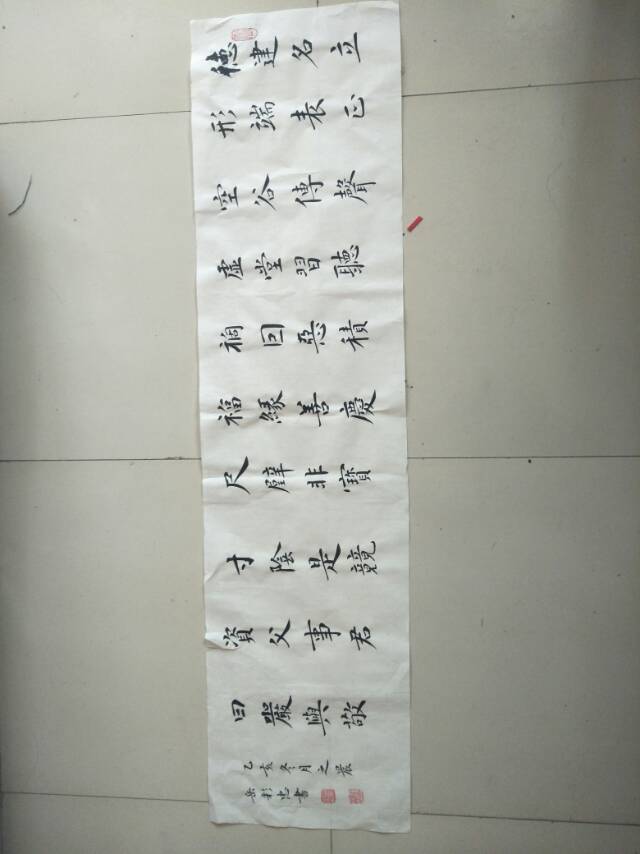 德建名立
形端表正
空谷傳聲
虛堂習聽
禍因惡積
福緣善慶
尺璧非寶
寸陰是競
資父事君
曰嚴與敬
亥冬月之晨
書